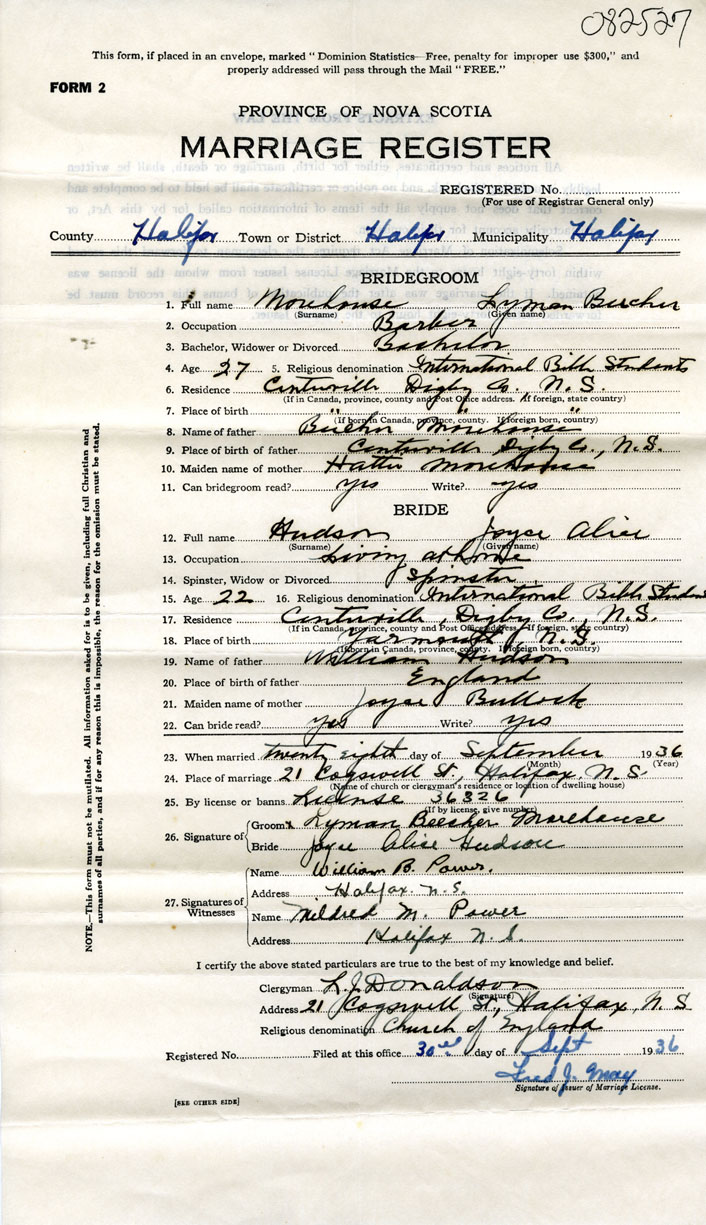 082527
This form, if placed in an envelope, marked "Dominion Statistics—Free, penalty for improper use $300," and
properly addressed will pass through the Mail "FREE."
FORM 2
PROVINCE OF NOVA SCOTIA
MARRIAGE REGISTER
REGISTERED No.
(For use of Registrar General only)
County Halifax Town or District Halifax Municipality Halifax
BRIDEGROOM
1. Full name Morehouse Lyman Beecher
(Surname) (Given name)
2. Occupation Barber
3. Bachelor, Widower or Divorced Bachelor
4. Age 27 5. Religious denomination International Bible Students
6. Residence Centreville Digby Co., N.S.
(If in Canada, province, county and Post Office address. If foreign, state country)
7. Place of birth " " "
(If born in Canada, province, county. If foreign born, country)
8. Name of father Morehouse
9. Place of birth of father Centreville Digby Co., N.S.
10. Maiden name of mother Hattie Morehouse
11. Can bridegroom read? yes Write? yes
BRIDE
12. Full name Hudson Joyce Alice
(Surname) (Given name)
13. Occupation Living at home
14. Spinster, Widow or Divorced Spinster
15. Age 22 16. Religious denomination International Bible Students
17. Residence Centreville, Digby Co., N.S.
(If in Canada, province, county and Post Office address. If foreign, state country)
18. Place of birth Yarmouth, N.S.
(If born in Canada, province, county. If foreign born, country)
19. Name of father William Hudson
20. Place of birth of father England
21. Maiden name of mother Joyce Bullock
22. Can bride read? yes Write? yes
23. When married twenty eight day of September 1936
(Month) (Year)
24. Place of marriage 21 Cogswell St., Halifax, N.S.
(Name of church or clergyman's residence or location of dwelling house)
25. By license or banns License 36326
(If by license, give number)
26. Signature of Groom x Lyman Beecher Morehouse
Bride Joyce Alice Hudson
27. Signatures of Witnesses
Name William B. Power.
Address Halifax N.S.
Name Mildred M. Power
Address Halifax N.S.
I certify the above stated particulars are true to the best of my knowledge and belief.
Clergyman L. J. Donaldson
(Signature)
Address 21 Cogswell St., Halifax, N.S.
Religious denomination Church of England
Registered No. Filed at this office 30 day of Sept 1936
Fred J. May
Signature of Issuer of Marriage License.
[SEE OTHER SIDE]
NOTE.—This form must not be mutilated. All information asked for is to be given, including full Christian and
surnames of all parties, and if for any reason this is impossible, the reason for the omission must be stated.